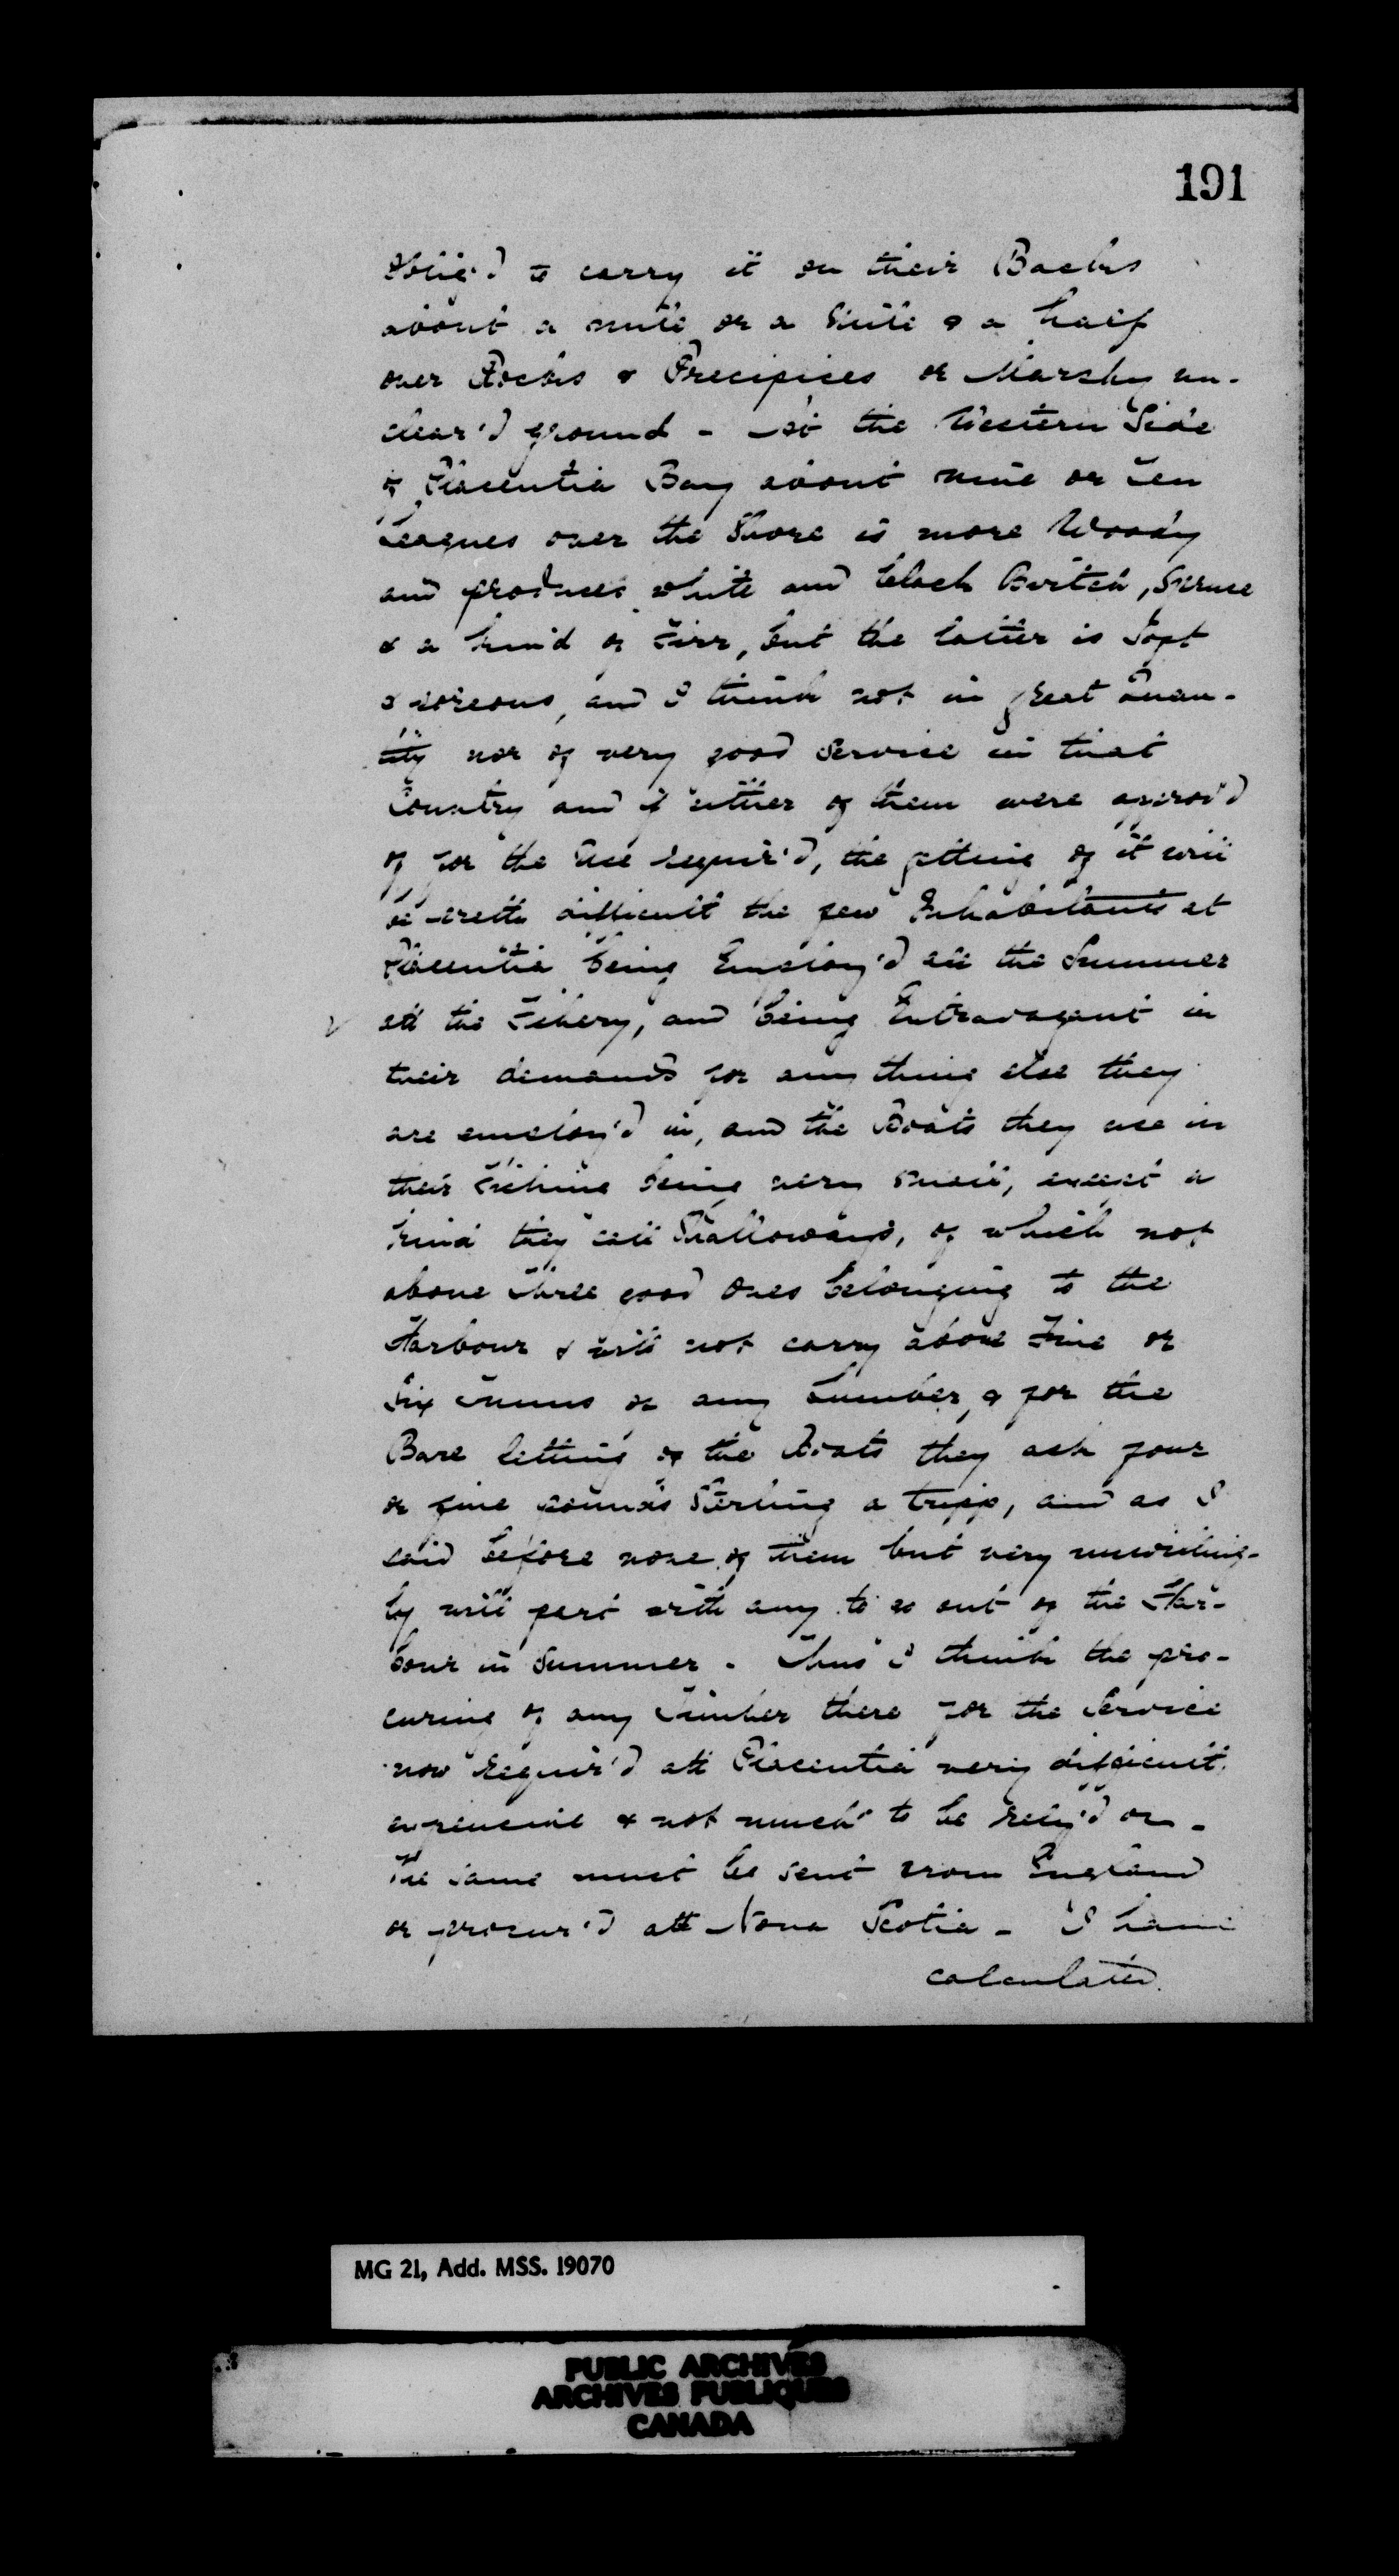 191
Oblig'd to carry it on their Backs
about a mile or a Mile & a half
over Rocks & Precipices or Marshy un-
clear'd ground - At the Western Side
of Placentia Bay about nine or Ten
Leagues over the Shore is more Woody
and produces white and black Burtch, Spruce
& a kind of Firr, but the latter is Soft
& poreous, and I think not in great Quan-
tity nor of very good Service in that
Country and if either of them were approv'd
of for the Use requir'd, the getting of it will
be difficult the few Inhabitants at
Placentia being Employ'd all the Summer
att the Fishery, and being Extravagent in
their demands for any thing else they
are employ'd in, and the Boats they use in
their Fishing being very small, except a
kind they call Shalloways, of which not
above Three good Ones belonging to the
Harbour & will not carry above Five or
Six Tunns of any Lumber, & for the
Bare letting of the Boats they ask four
or five pounds Sterling a tripp, and as I
said before none of them but very unwilling-
ly will part with any to go out of the Har-
bour in Summer. Thus I think the pro-
curing of any Timber there for the Service
now requir'd att Placentia very difficult,
expencive & not much to be rely'd on.
The same must be sent from England
or procur'd att Nova Scotia - I have
calculated
MG 21, Add. MSS. 19070
PUBLIC ARCHIVES
ARCHIVES PUBLIQUES
CANADA